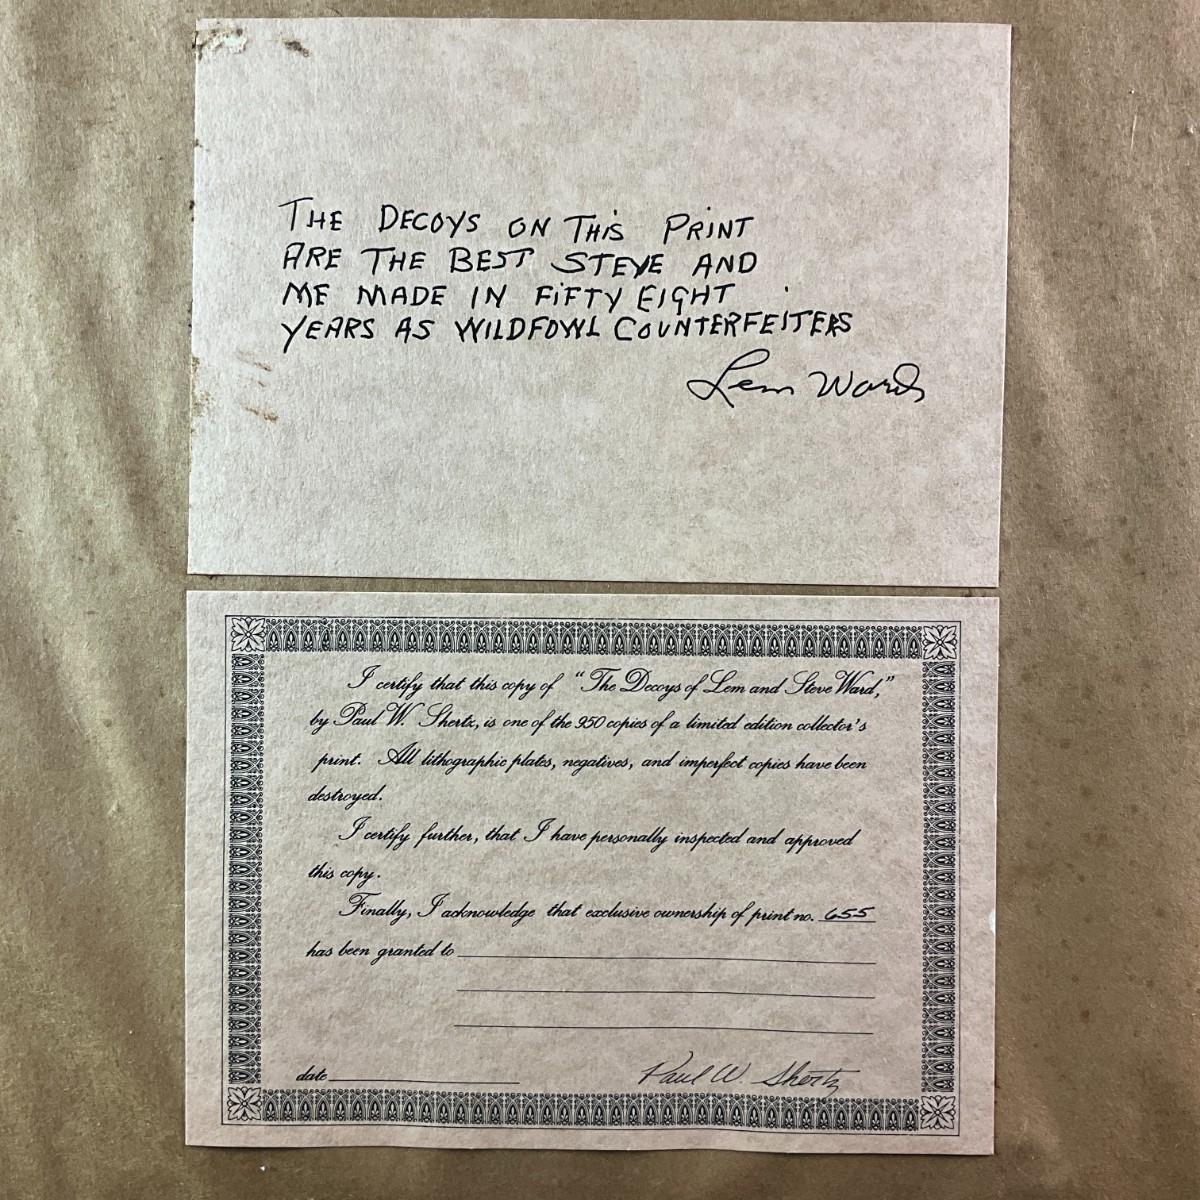 THE DECOYS ON THIS PRINT
ARE THE BEST STEVE AND
ME MADE IN FIFTY EIGHT
YEARS AS WILDFOWL COUNTERFEITERS
Lem Ward
I certify that this copy of "The Decoys of Lem and Steve Ward,"
by Paul W. Shertz, is one of the 950 copies of a limited edition collector's
print. All lithographic plates, negatives, and imperfect copies have been
destroyed.
I certify further, that I have personally inspected and approved
this copy.
Finally, I acknowledge that exclusive ownership of print no. 655
has been granted to
date
Paul W. Shertz